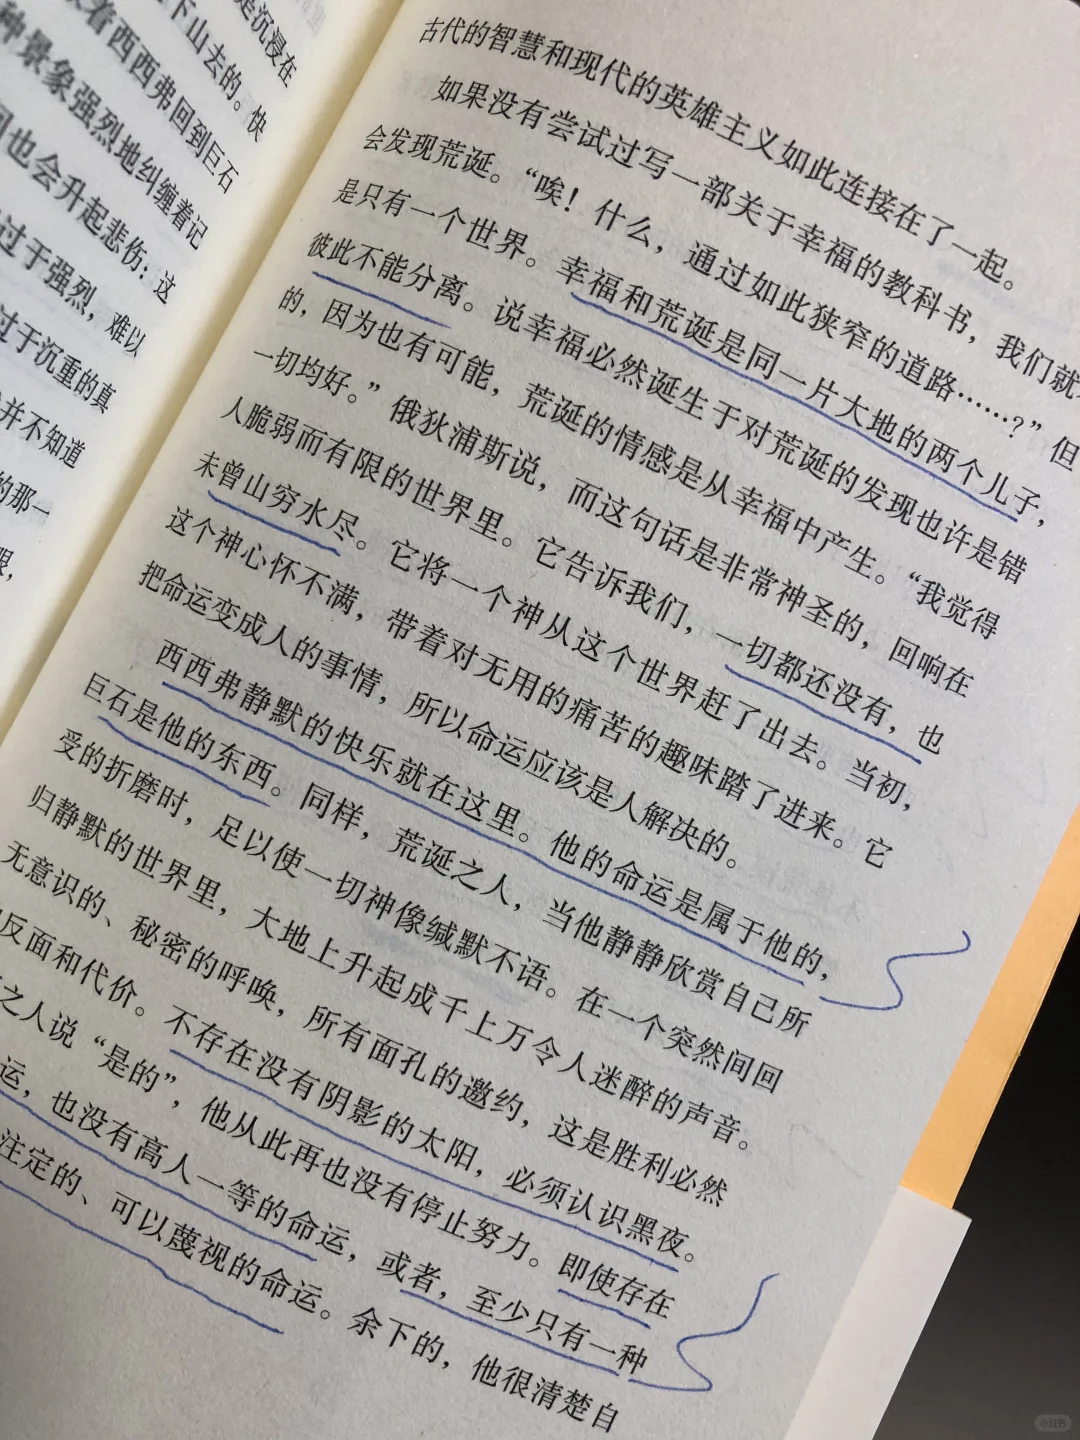 是沉浸在
下山去的。快
着西西弗回到巨石
种景象强烈地纠缠着记
也会升起悲伤：这
过于强烈，难以
过于沉重的真
并不知道
的那一
眼，
古代的智慧和现代的英雄主义如此连接在了一起。
如果没有尝试过写一部关于幸福的教科书，我们就
会发现荒诞。“唉！什么，通过如此狭窄的道路……？”但
是只有一个世界。幸福和荒诞是同一片大地的两个儿子，
彼此不能分离。说幸福必然诞生于对荒诞的发现也许是错
的，因为也有可能，荒诞的情感是从幸福中产生。“我觉得
一切均好。”俄狄浦斯说，而这句话是非常神圣的，回响在
人脆弱而有限的世界里。它告诉我们，一切都还没有，也
未曾山穷水尽。它将一个神从这个世界赶了出去。当初，
这个神心怀不满，带着对无用的痛苦的趣味踏了进来。它
把命运变成人的事情，所以命运应该是人解决的。
西西弗静默的快乐就在这里。他的命运是属于他的，
巨石是他的东西。同样，荒诞之人，当他静静欣赏自己所
受的折磨时，足以使一切神像缄默不语。在一个突然间回
归静默的世界里，大地上升起成千上万令人迷醉的声音。
无意识的、秘密的呼唤，所有面孔的邀约，这是胜利必然
反面和代价。不存在没有阴影的太阳，必须认识黑夜。
之人说“是的”，他从此再也没有停止努力。即使存在
运，也没有高人一等的命运，或者，至少只有一种
注定的、可以蔑视的命运。余下的，他很清楚自
小红书